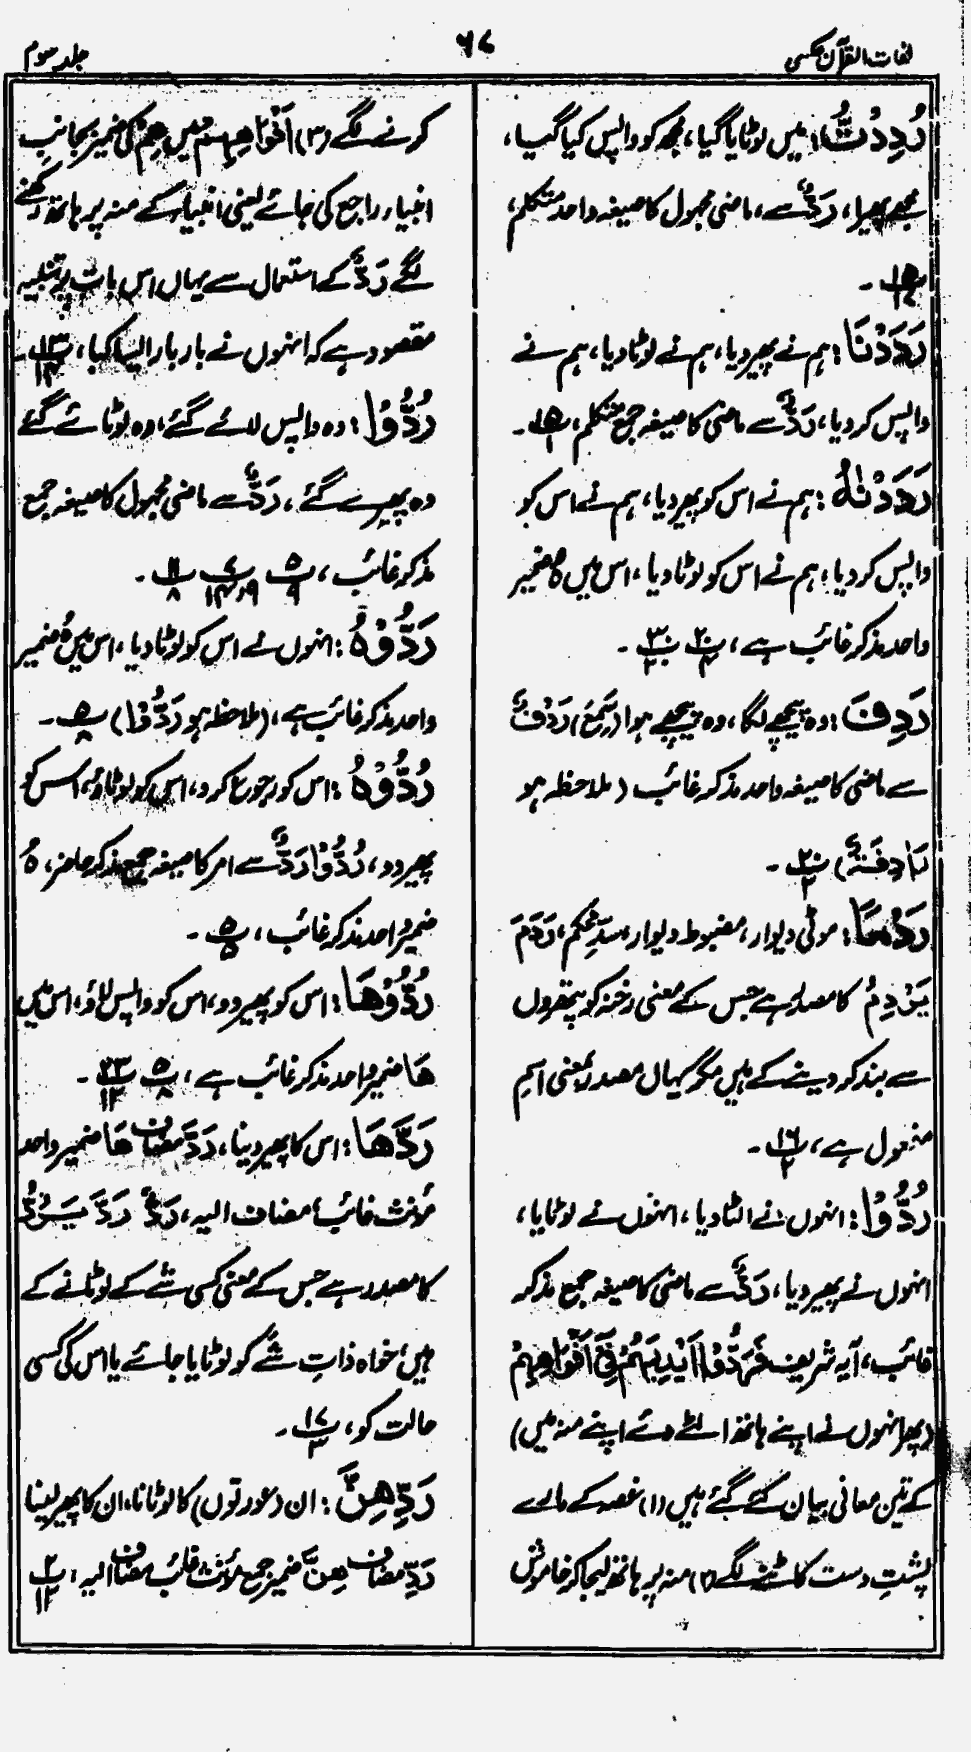 لغات القرآن عکسی
۶۷
جلد سوم
رُدِدْتُّ: میں لوٹایا گیا، مجھ کو واپس کیا گیا،
مجھے پھیرا، رَدٌّ سے، ماضی مجہول کا صیغہ واحد متکلم،
رَدَدْنَا: ہم نے پھیر دیا، ہم نے لوٹا دیا، ہم نے
واپس کر دیا، رَدٌّ سے ماضی کا صیغہ جمع متکلم،
رَدَدْنٰهُ: ہم نے اس کو پھیر دیا، ہم نے اس کو
واپس کر دیا، ہم نے اس کو لوٹا دیا، اس میں ہ ضمیر
واحد مذکر غائب ہے، پ۲۰/۴ پ۳۰/۲۰۔
رَدِفَ: وہ پیچھے لگا، وہ پیچھے ہوا (سَمِعَ) رَدْفٌ
سے ماضی کا صیغہ واحد مذکر غائب (ملاحظہ ہو
رَادِفَةٌ) پ۲۰/۲۔
رَدْمًا: موٹی دیوار، مضبوط دیوار، سدِّ محکم، رَدَمَ
یَرْدِمُ کا مصدر ہے جس کے معنی رخنہ کو پتھروں
سے بند کر دینے کے ہیں مگر یہاں مصدر بمعنی اسم
مفعول ہے، پ۱۶/۲۔
رَدُّوْا: انہوں نے الٹا دیا، انہوں نے لوٹایا،
انہوں نے پھیر دیا، رَدٌّ سے ماضی کا صیغہ جمع مذکر
غائب، آیہ شریفہ فَرَدُّوْا اَيْدِيَهُمْ فِيْ اَفْوَاهِهِمْ
(پھر انہوں نے اپنے ہاتھ الٹے دئے اپنے منہ میں)
کے تین معانی بیان کئے گئے ہیں (۱) غصہ کے مارے
پشتِ دست کاٹنے لگے (۲) منہ پر ہاتھ لیجا کر خاموش
کرنے لگے (۳) اَفْوَاهِهِمْ میں هِمْ کی ضمیر بجانبِ
انبیاء راجع کی جائے یعنی انبیاء کے منہ پر ہاتھ رکھنے
لگے رَدٌّ کے استعمال سے یہاں اس بات پر تنبیہ
مقصود ہے کہ انہوں نے بار بار ایسا کیا، پ۱۳/۱۴۔
رُدُّوْا: وہ واپس لائے گئے، وہ لوٹائے گئے
وہ پھیرے گئے، رَدٌّ سے ماضی مجہول کا صیغہ جمع
مذکر غائب، پ۵/۹ پ۷/۹،۱۴ پ۱۱/۸۔
رَدُّوْهُ: انہوں نے اس کو لوٹا دیا، اس میں هُ ضمیر
واحد مذکر غائب ہے، (ملاحظہ ہو رَدُّوْا) پ۵/۸۔
رُدُّوْهُ: اس کو رجوع کرو، اس کو لوٹاؤ، اس کو
پھیر دو، رُدُّوْا رَدٌّ سے امر کا صیغہ جمع مذکر حاضر، هُ
ضمیر واحد مذکر غائب، پ۵/۵۔
رُدُّوْهَا: اس کو پھیر دو، اس کو واپس لاؤ، اس میں
هَا ضمیر واحد مذکر غائب ہے، پ۵/۸ پ۲۳/۱۲۔
رَدَّهَا: اس کا پھیر دینا، رَدَّ مضاف هَا ضمیر واحد
مؤنث غائب مضاف الیہ، رَدٌّ رَدَّ یَرُدُّ
کا مصدر ہے جس کے معنی کسی شے کے لوٹانے کے
ہیں، خواہ ذاتِ شے کو لوٹایا جائے یا اس کی کسی
حالت کو، پ۱۷/۳۔
رَدِّهِنَّ: ان (عورتوں) کا لوٹانا، ان کا پھیر لینا
رَدِّ مضاف هِنَّ ضمیر جمع مؤنث غائب مضاف الیہ، پ۲/۱۲